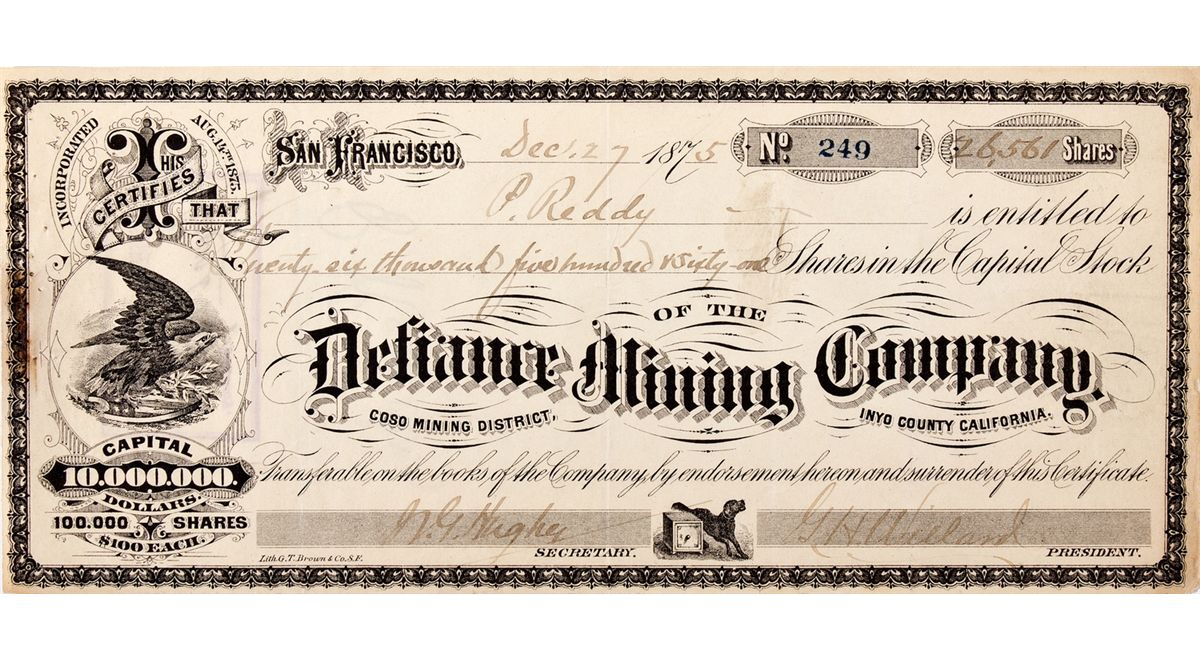 INCORPORATED AUG. 14TH 1875.
THIS CERTIFIES THAT
SAN FRANCISCO, Dec. 27 1875 No. 249 26,561 Shares
P. Reddy is entitled to
Twenty six thousand five hundred & sixty-one Shares in the Capital Stock
OF THE
Defiance Mining Company.
COSO MINING DISTRICT, INYO COUNTY CALIFORNIA.
Transferable on the books of the Company, by endorsement hereon and surrender of this Certificate.
CAPITAL
10.000.000.
DOLLARS.
100.000 SHARES
$100 EACH.
SECRETARY.
PRESIDENT.
Lith. G. T. Brown & Co. S.F.